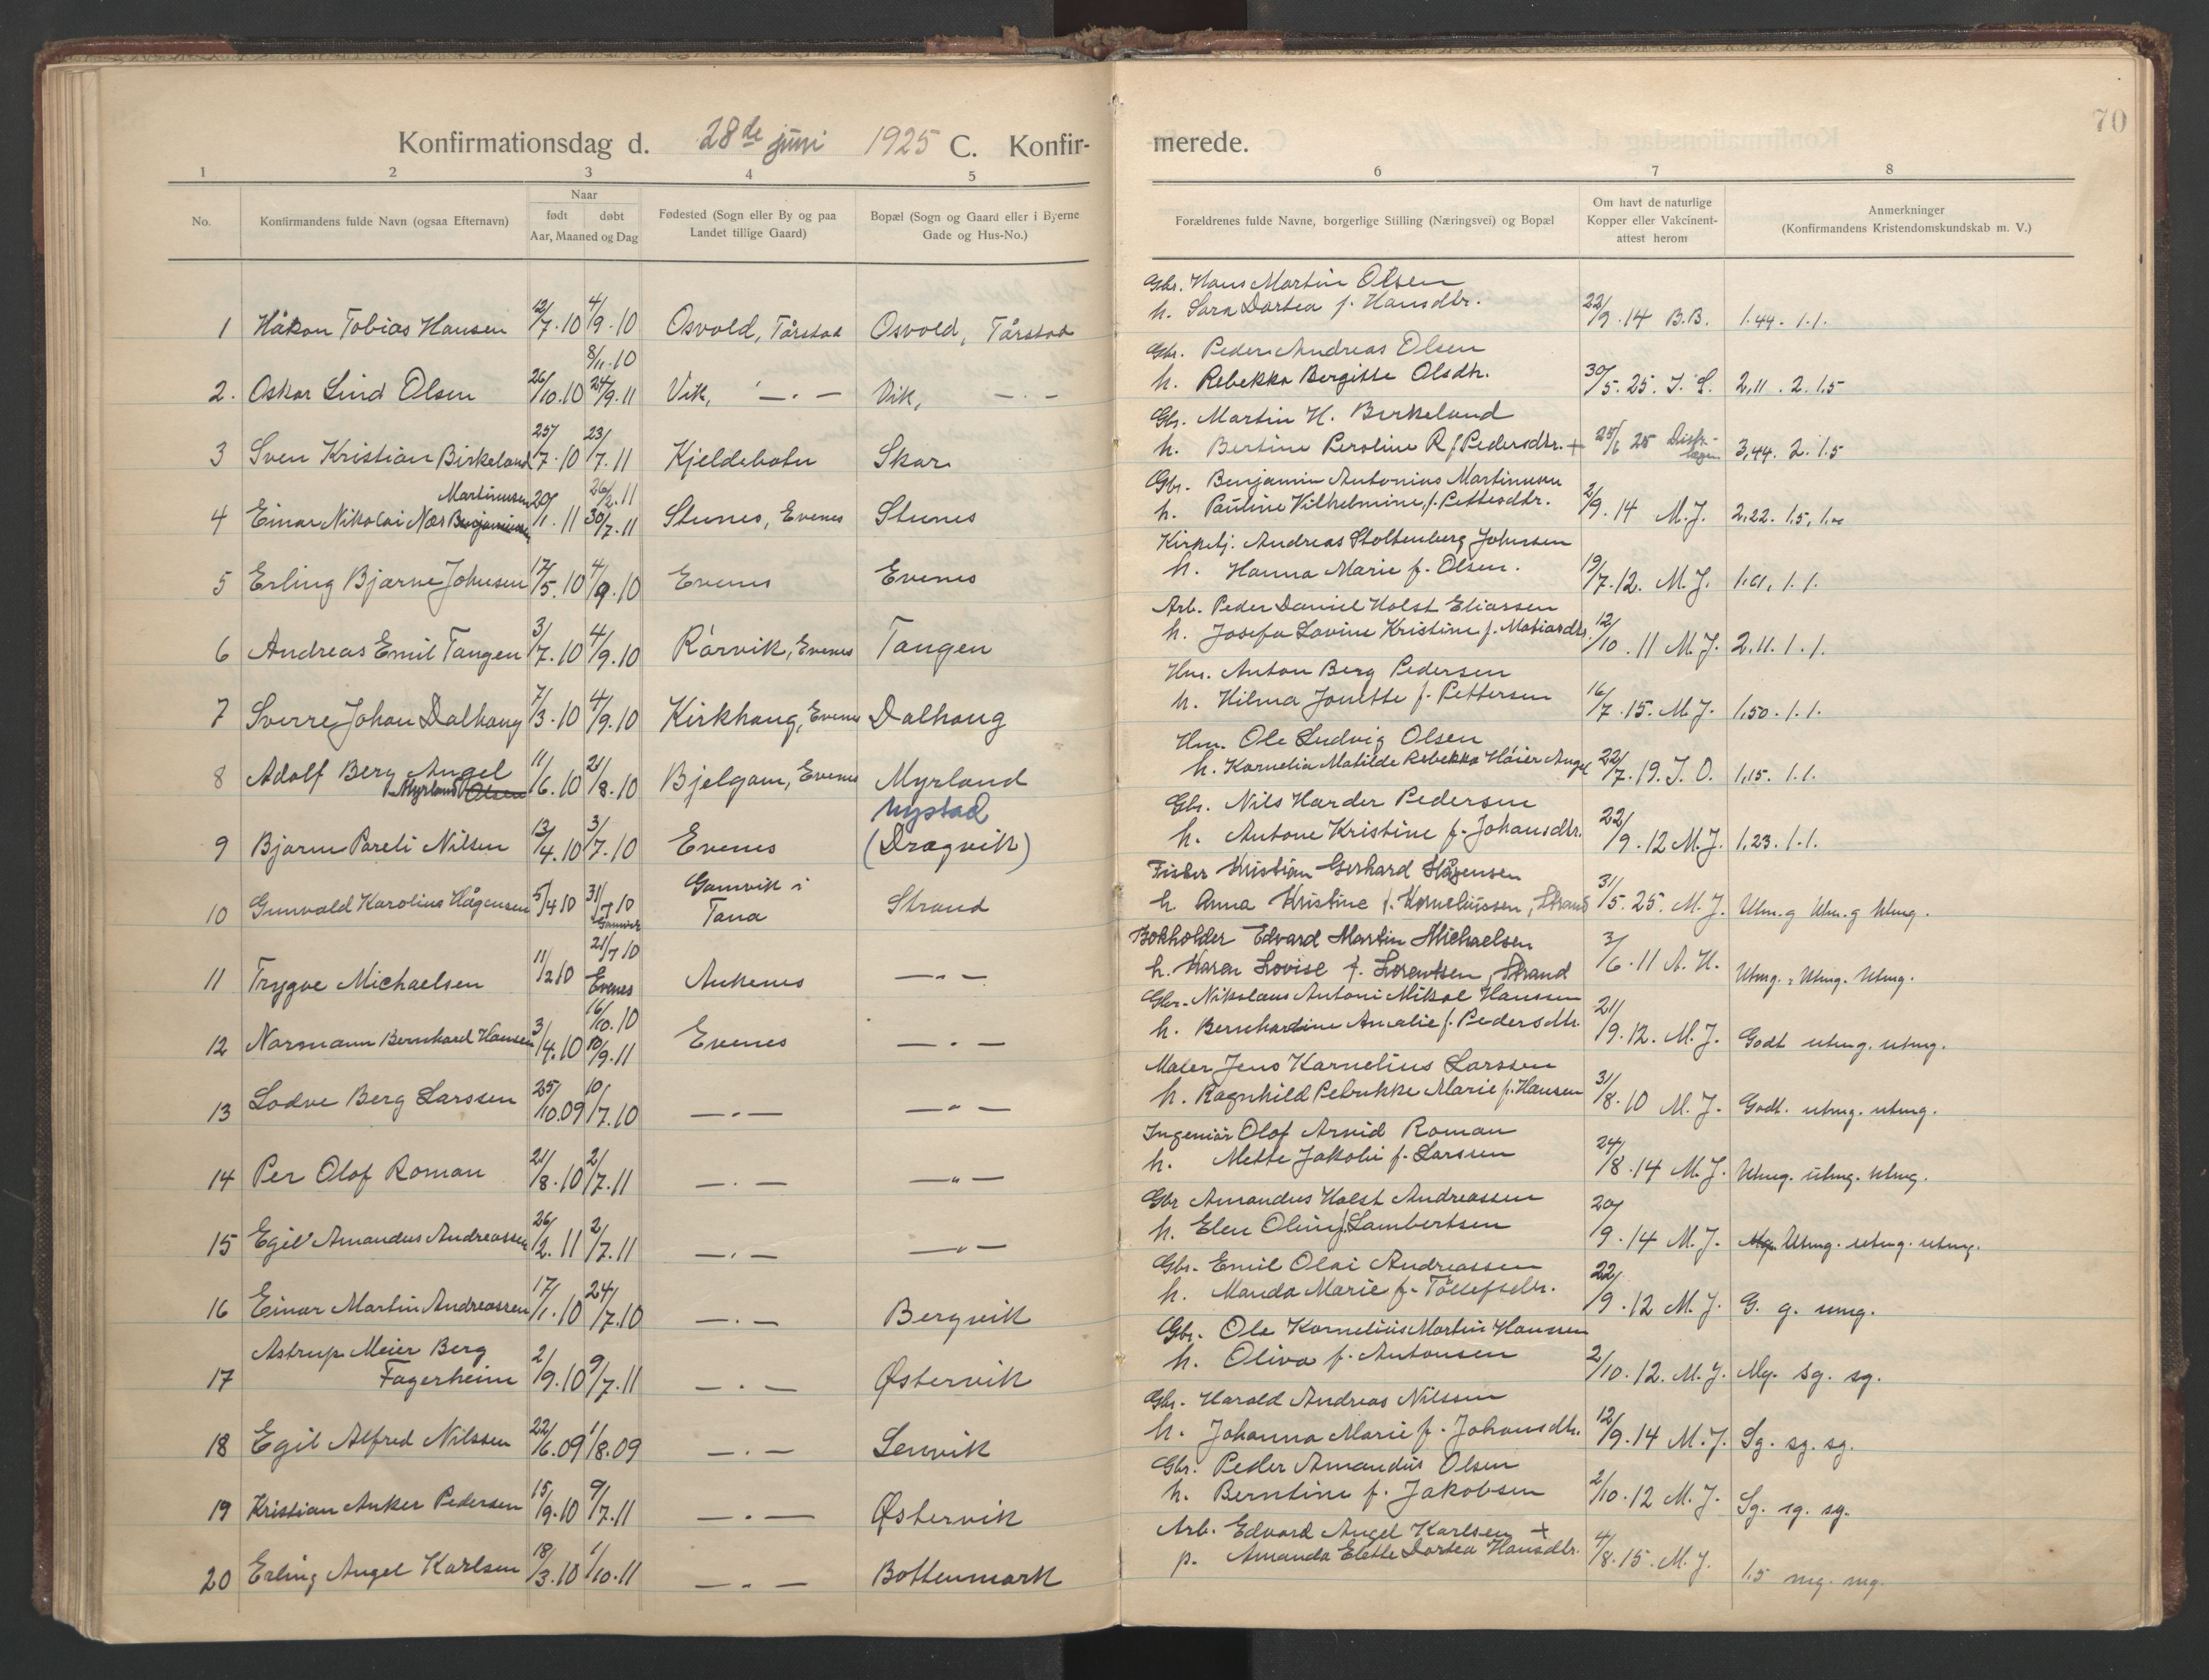 70
Konfirmationsdag d. 28de juni 1925 C. Konfir-
merede.
1 2 3 4 5 6 7 8
No.
Konfirmandens fulde Navn (ogsaa Efternavn)
Naar
født døbt
Aar, Maaned og Dag
Fødested (Sogn eller By og paa
Landet tillige Gaard)
Bopæl (Sogn og Gaard eller i Byerne
Gade og Hus-No.)
Forældrenes fulde Navne, borgerlige Stilling (Næringsvei) og Bopæl
Om havt de naturlige
Kopper eller Vakcinent-
attest herom
Anmerkninger
(Konfirmandens Kristendomskundskab m. V.)
Gbr. Hans Martin Olsen
1 Håkon Tobias Hansen 12/7.10 4/9.10 Osvold, Tårstad Osvold, Tårstad h. Sara Dortea f. Hansdtr. 22/9.14 B.B. 1.44. 1.1.
8/11.10 Gbr. Peder Andreas Olsen
2. Oskar Lind Olsen 26/10.10 24/9.11 Vik, —.— Vik, —.— h. Rebekka Bergitte Olsdtr. 30/5.25. J. S. 2,11. 2. 1.5
Gbr. Martin H. Birkeland
3 Sven Kristian Birkeland 25/7.10 23/7.11 Kjeldebotn Skar h. Bertine Peroline R f. Pedersdtr. + 25/6 25 Distr.-lægen 3,44. 2. 1.5
Martinussen 26/2.11 Gbr. Benjamin Antonius Martinussen
4 Einar Nikolai Næs Benjaminsen 20/1.11 30/7.11 Stunes, Evenes Stunes h. Pauline Vilhelmine f. Pettersdtr. 2/9.14 M.J. 2,22. 1.5,
Kirketj. Andreas Stoltenberg Johnsen
5 Erling Bjarne Johnsen 17/5.10 4/9.10 Evenes Evenes h. Hanna Marie f. Olsen. 19/7.12. M.J. 1,61, 1.1.
Arb. Peder Daniel Holst Eliassen
6 Andreas Emil Tangen 3/7.10 4/9.10 Rårvik, Evenes Tangen h. Josefa Lovine Kristine f. Matiasdtr. 12/10.11 M.J. 2.11. 1.1.
Hm. Anton Berg Pedersen
7 Sverre Johan Dalhaug 7/3.10 4/9.10 Kirkhaug, Evenes Dalhaug h. Hilma Jonette f. Pettersen 16/7.15. M.J. 1,50. 1.1.
Hm. Ole Ludvig Olsen
8 Adolf Berg Angel 11/6.10 21/8.10 Bjelgam, Evenes Myrland h. Kornelia Matilde Rebekka Høier Angel 22/7.19. J. O. 1,15. 1.1.
Myrland Olsen
Nystad Gbr. Nils Harder Pedersen
9 Bjarne Pareli Nilsen 13/4.10 3/7.10 Evenes (Dragvik) h. Antone Kristine f. Johansdtr. 22/9.12 M.J. 1,23. 1.1.
Gamvik i Fisker Kristian Gerhard Hågensen
10 Gunvald Karolius Hågensen 5/4 10 31/7 10 Gamvik Tana Strand h Anna Kristine f. Korneliussen, Strand 31/5.25. M.J. Utm.g Utm.g Utmg.
21/7 10 Bokholder Edvard Martin Michaelsen
11 Trygve Michaelsen 11/2 10 Evenes Ankenes —"— h. Karen Lovise f. Lorentsen, Strand 3/6.11 A. H. Utmg., Utmg. Utmg.
16/10.10 Gbr. Nikolaus Antoni Mikal Hansen
12 Normann Bernhard Hansen 3/4.10 10/9.11 Evenes —.— h. Bernhardine Amalie f. Pedersdtr. 21/9.12. M.J. Godt utmg. utmg.
Maler Jens Kornelius Larssen
13 Lodve Berg Larssen 25/10.09 10/7.10 —.— —"— h. Ragnhild Petrikke Marie f. Hansen 31/8.10 M.J. Godt. utmg. utmg.
Ingeniør Olof Arvid Roman
14 Per Olof Roman 21/8.10 2/7.11 —.— —"— h. Mette Jakobi f. Larsen 24/8.14 M.J. Utmg. utmg. utmg.
Gbr Amandus Holst Andreassen
15 Egil Amandus Andreassen 26/2.11 2/7.11 —.— —"— h. Elen Olina f. Lambertsen 20/9.14 M.J. Mg. Utmg. utmg. utmg.
Gbr. Emil Olai Andreassen
16 Einar Martin Andreassen 17/1.10 24/7.10 —.— Bergvik h. Manda Marie f. Tollefsdtr. 22/9.12 M.J. G. g. umg.
Astrup Meier Berg Gbr. Ole Kornelius Martin Hansen
17 Fagerheim 2/9.10 9/7.11 —.— Østervik h. Oliva f. Antonsen 2/10.12. M.J. Mg. sg. sg.
Gbr. Harald Andreas Nilssen
18 Egil Alfred Nilssen 22/6.09 1/8.09 —.— Lenvik h. Johanna Marie f. Johansdtr. 12/9.14 M.J. Sg. sg. sg.
Gbr. Peder Amandus Olsen
19 Kristian Anker Pedersen 15/9.10 9/7.11 —.— Østervik h. Berntine f. Jakobsen 2/10.12 M.J. Sg. sg. sg.
Arb. Edvard Angel Karlsen +
20 Erling Angel Karlsen 18/3.10 1/10.11 —.— Bottenmark p. Amanda Elette Dortea Hansdtr. 4/8.15. M.J. 1.5 mg. mg.